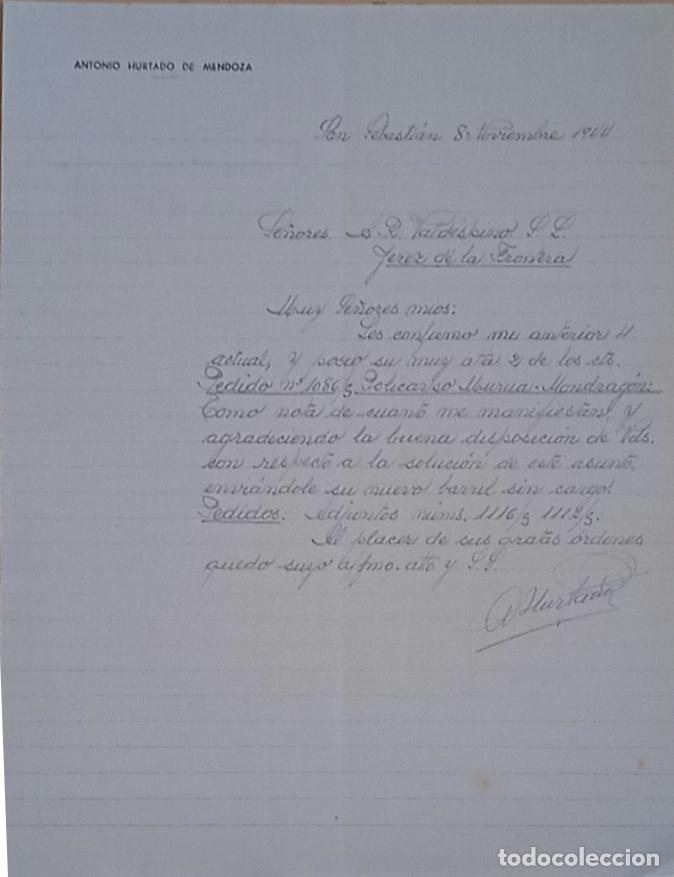 ANTONIO HURTADO DE MENDOZA
San Sebastián 8 Noviembre 1944
Señores. A. R. Valdespino S. L.
Jerez de la Frontera
Muy Señores mios:
Les confirmo mi anterior 4
actual, y poseo su muy ata 2 de los cts.
Pedido nº 1086/5 Policarpo Murua-Mondragón:
Tomo nota de cuanto me manifiestan, y
agradeciendo la buena disposición de Vds.
con respecto a la solución de este asunto,
enviándole su nuevo barril sin cargo.
Pedidos: adjuntos núms. 1116/5 1112/5.
Al placer de sus gratas órdenes
quedo suyo affmo. atto y S.S.
A Hurtado
todocoleccion